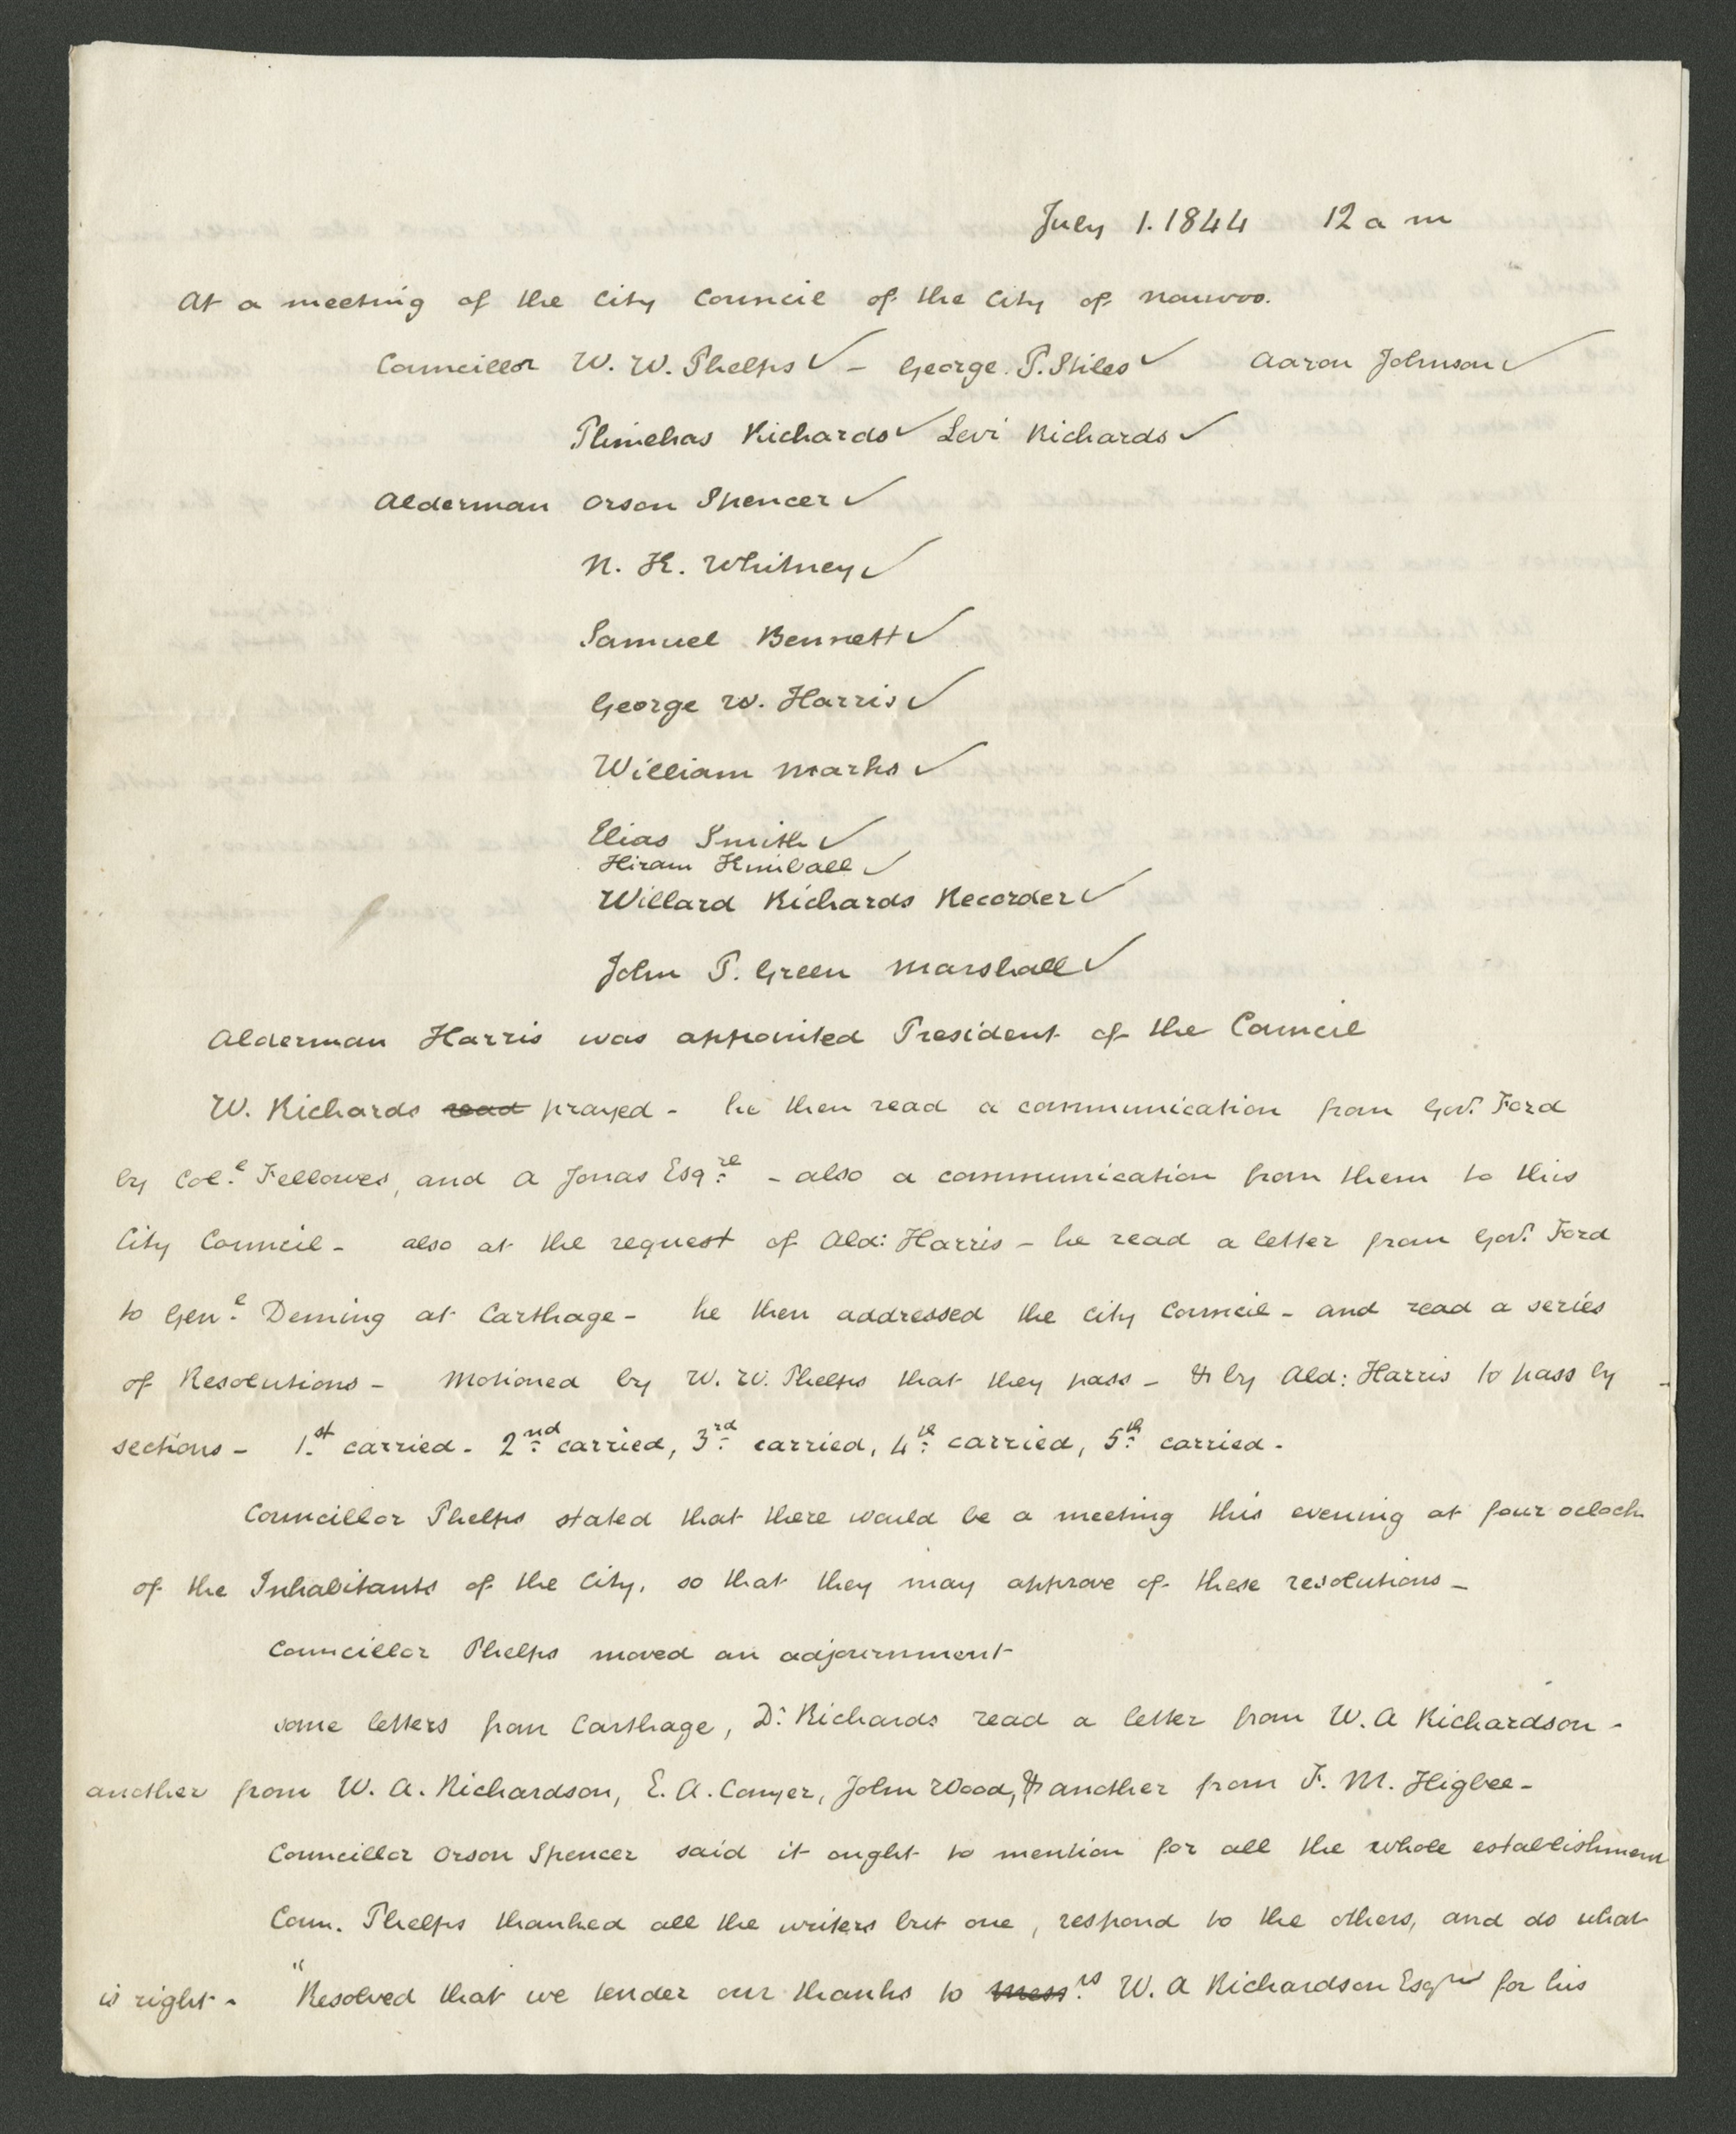 July 1. 1844 12 a m
At a meeting of the City Council of the City of Nauvoo.
Councillor W. W. Phelps ✓ - George. P. Stiles ✓ Aaron Johnson ✓
Phinehas Richards ✓ Levi Richards ✓
Alderman Orson Spencer ✓
N. K. Whitney ✓
Samuel Bennett ✓
George W. Harris ✓
William Marks ✓
Elias Smith ✓
Hiram Kimball ✓
Willard Richards Recorder ✓
John P. Green Marshall ✓
Alderman Harris was appointed President of the Council
W. Richards read prayed - he then read a communication from Govr. Ford
by Col.l Fellowes, and A Jonas Esq.re - also a communication from them to this
City Council - also at the request of Ald: Harris - he read a letter from Govr. Ford
to Gen.l Deming at Carthage - he then addressed the City Council - and read a series
of Resolutions - Motioned by W. W. Phelps that they pass - & by Ald: Harris to pass by
sections - 1.st carried - 2.nd carried, 3.rd carried, 4.th carried, 5.th carried -
Councillor Phelps stated that there would be a meeting this evening at four oclock
of the Inhabitants of the City, so that they may approve of these resolutions -
Councillor Phelps moved an adjournment
some letters from Carthage, Dr. Richards read a letter from W. A Richardson -
another from W. A. Richardson, E. A. Conyer, John Wood, & another from F. M. Higbee -
Councillor Orson Spencer said it ought to mention for all the whole establishment
Coun. Phelps thanked all the writers but one, respond to the others, and do what
is right - "Resolved that we tender our thanks to Mess.rs W. A Richardson Esqre for his